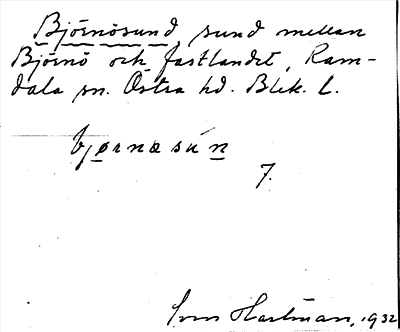 Björnösund sund mellan
Björnö och fastlandet, Ram-
dala sn. Östra hd. Blek. L.
bjørnæsún
7.
Sven Hartman, 1932